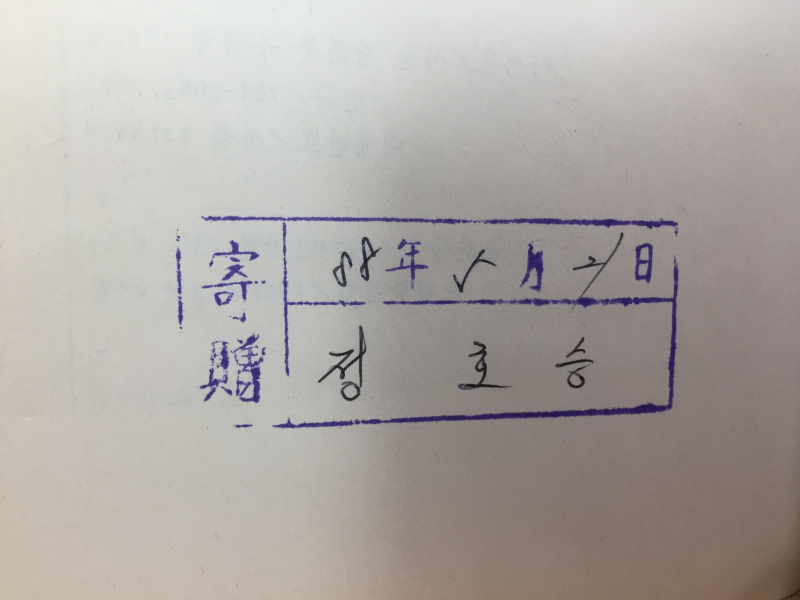 寄贈
88年 5月 21日
정호승